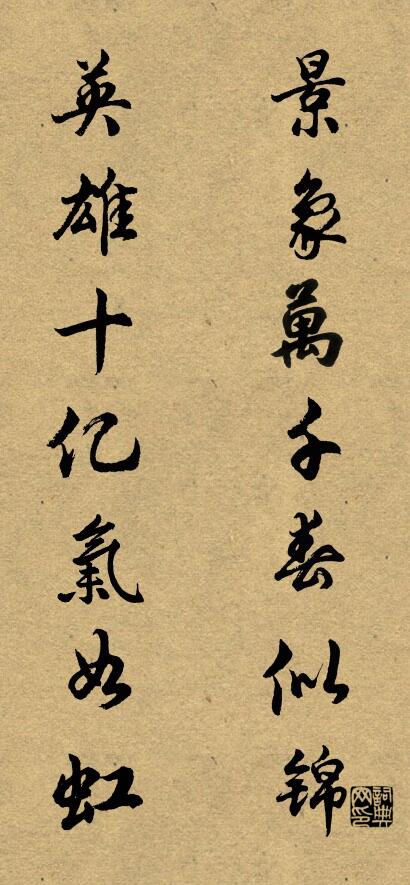 景象萬千春似锦
英雄十亿氣如虹
詞典网印